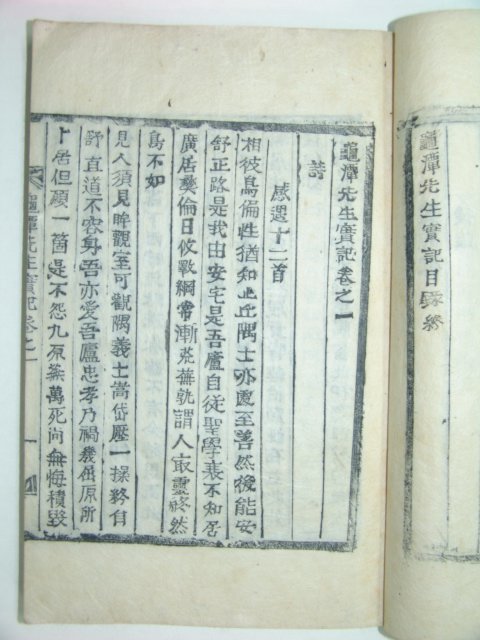 龜潭先生實記目錄終
龜潭先生實記卷之一
詩
感遇十二首
相彼鳥偏性猶知止丘隅士亦處至善然後能安
舒正路是我由安宅是吾廬自從聖學衰不知居
廣居彝倫日攸斁綱常漸荒蕪孰謂人最靈終然
鳥不如
見人須見眸觀室可觀隅義士嵩岱壓一操終自
舒直道不容身吾亦愛吾廬忠孝乃禍幾屈原所
卜居但願一箇是不怨九原蕪萬死尚無悔積毀
龜潭先生實記卷之一
一